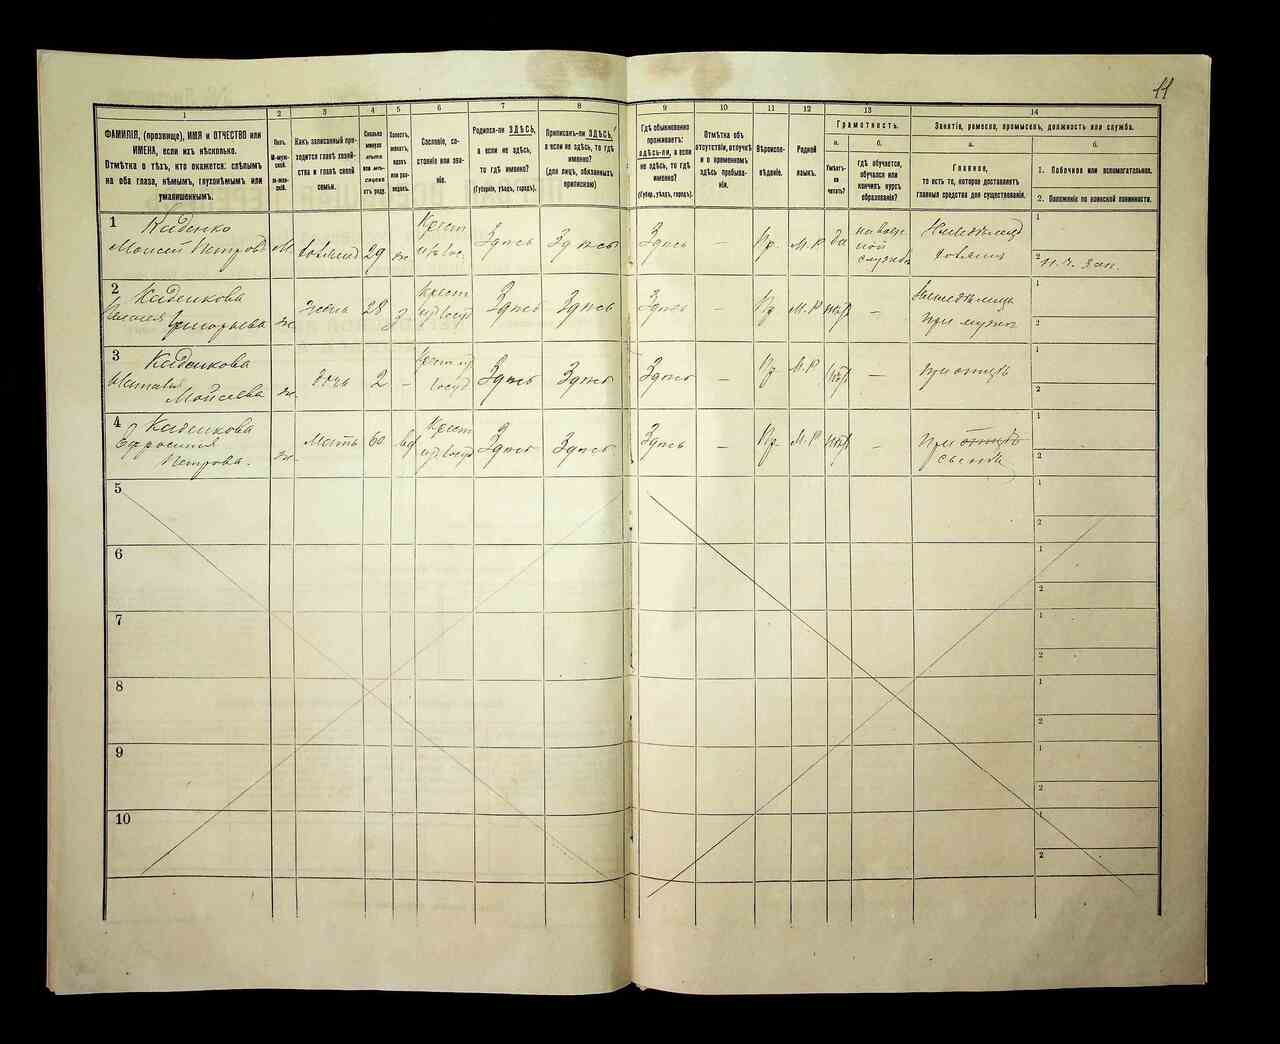 11
1
2
3
4
5
6
7
8
9
10
11
12
13
14
ФАМИЛІЯ, (прозвище), ИМЯ и ОТЧЕСТВО или
ИМЕНА, если ихъ нѣсколько.
Отмѣтка о тѣхъ, кто окажется: слѣпымъ
на оба глаза, нѣмымъ, глухонѣмымъ или
умалишеннымъ.
Полъ.
М-муж-
ской.
Ж-жен-
скій.
Какъ записанный при-
ходится главѣ хозяй-
ства и главѣ своей
семьи.
Сколько
минуло
лѣтъ
или мѣ-
сяцевъ
отъ роду.
Холостъ,
женатъ,
вдовъ
или раз-
веденъ.
Сословіе, со-
стояніе или зва-
ніе.
Родился-ли ЗДѢСЬ,
а если не здѣсь,
то гдѣ именно?
(Губернія, уѣздъ, городъ).
Приписанъ-ли ЗДѢСЬ,
а если не здѣсь, то гдѣ
именно?
(для лицъ, обязанныхъ
припискою)
Гдѣ обыкновенно
проживаетъ:
здѣсь-ли, а если
не здѣсь, то гдѣ
именно?
(Губер., уѣздъ, городъ).
Отмѣтка объ
отсутствіи, отлучкѣ
и о временномъ
здѣсь пребыва-
ніи.
Вѣроиспо-
вѣданіе.
Родной
языкъ.
Грамотность.
а.
Умѣетъ-
ли
читать?
б.
Гдѣ обучается,
обучался или
кончилъ курсъ
образованія?
Занятіе, ремесло, промыселъ, должность или служба.
а.
Главное,
то есть то, которое доставляетъ
главныя средства для существованія.
б.
1. Побочное или вспомогательное.
2. Положеніе по воинской повинности.
1
Каденко
Моисей Петровъ
М.
29
Крест
Здѣсь
Здѣсь
Здѣсь
—
Пр.
М.Р
да
на воен
ной
службѣ
1
2
2
Каденкова
Григорьева
ж.
жена
28
З
Крест
Здѣсь
Здѣсь
Здѣсь
—
Пр
М.Р
нѣтъ
—
при мужѣ
1
2
3
Каденкова
Наталія
Моисеева
ж.
дочь
2
—
Здѣсь
Здѣсь
Здѣсь
—
Пр.
М.Р
нѣтъ
—
при отцѣ
1
2
4
Каденкова
Ефросинія
Петрова.
ж.
Мать
60
вд
Крест
Здѣсь
Здѣсь
Здѣсь
—
Пр.
М.Р
нѣтъ
—
при отцѣ
сынѣ
1
2
5
1
2
6
1
2
7
1
2
8
1
2
9
1
2
10
1
2